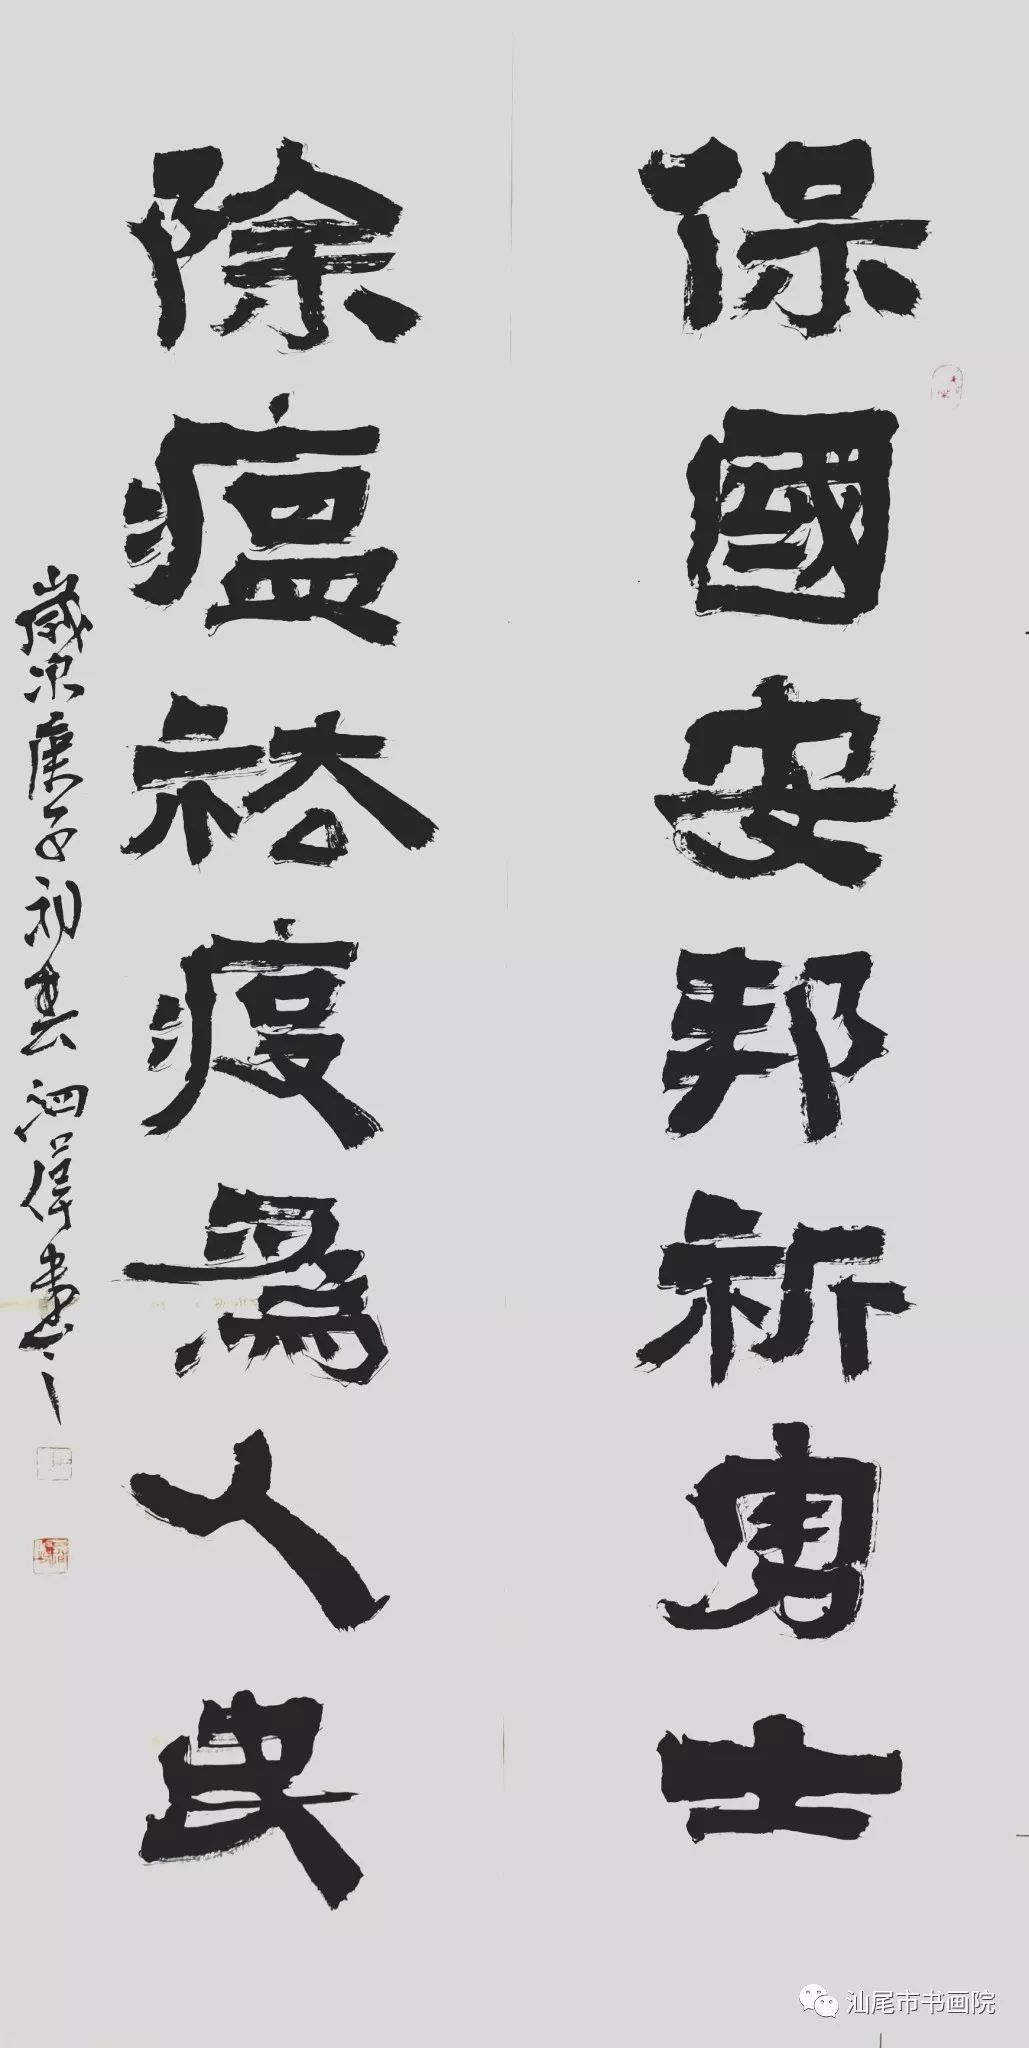 保國安邦祈勇士
除瘟祛疫爲人民
歲次庚子初春泗偉書之
汕尾市书画院